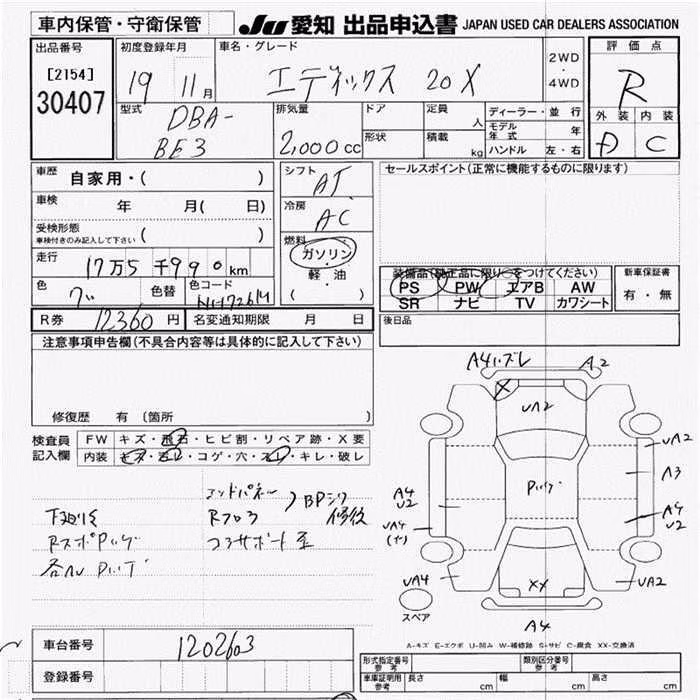 車内保管・守衛保管
JU 愛知 出品申込書 JAPAN USED CAR DEALERS ASSOCIATION
出品番号
[2154]
30407
初度登録年月
19 11月
車名・グレード
エディックス 20X
2WD
・
4WD
評価点
R
外装 内装
D C
型式
DBA-
BE3
排気量
2,000cc
ドア
形状
定員
人
積載
kg
ディーラー・並行
モデル年式 年
ハンドル 左・右
車歴
自家用・( )
車検
年 月( 日)
受検形態
車検付きのみ記入して下さい ( )
走行
17万5千990km
色
色替
色コード
NH726M
シフト
AT
冷房
AC
燃料
ガソリン
・
軽・油
( )
セールスポイント(正常に機能するものに限ります)
装備品(純正品に限り○をつけてください)
PS PW エアB AW
SR ナビ TV カワシート
新車保証書
有・無
後日品
R券 12360円
名変通知期限 月 日
注意事項申告欄(不具合内容等は具体的に記入して下さい)
修復歴 有 (箇所
検査員
記入欄
FW キズ・飛石・ヒビ割・リペア跡・X要
内装 キズ・汚レ・コゲ・穴・スレ・キレ・破レ
エンドパネル
Rフロア
コアサポート歪
BPシワ
修後
下廻りS
A4ハズレ A2
UA2
X
UA2
A3
A4
U2
A4
U2
UA4
UA4
XX
UA2
A4
スペア
A-キズ E-エクボ U-凹み W-補修跡 S-サビ C-腐食 XX-交換済
車台番号
1202603
登録番号
形式指定番号
参考
類別区分番号
参考
車庫証明用
参考
長さ cm
幅 cm
高さ cm